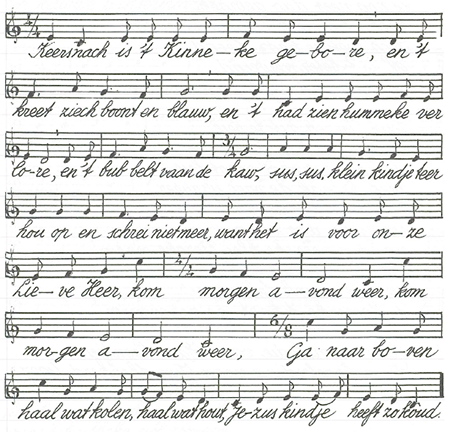 Keersnach is 't Kinne-ke ge-bo-re, en 't
kreet ziech boont en blauw, en 't had zien hummeke ver
lo-re, en 't bub belt vaan de kaw, sus, sus, klein kindje teer
hou op en schrei niet meer, want het is voor on-ze
Lie-ve Heer, kom morgen a-vond weer, kom
mor-gen a-vond weer, Ga naar bo-ven
haal wat kolen, haal wat hout, Je-zus kindje heeft zo koud.